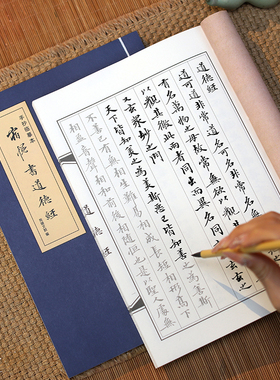 手抄临摹本
書道德经
道德经
道可道非常道名可名非常名
有名萬物之母故常無欲以觀其
以觀其徼此兩者同出而異名同謂之玄玄之
又玄衆妙之門
天下皆知美之為美斯惡已皆知善之為善斯
不善已有無相生難易相成長短相形高下
相盈音聲相和前後相隨恒也是以聖人處無
道德经